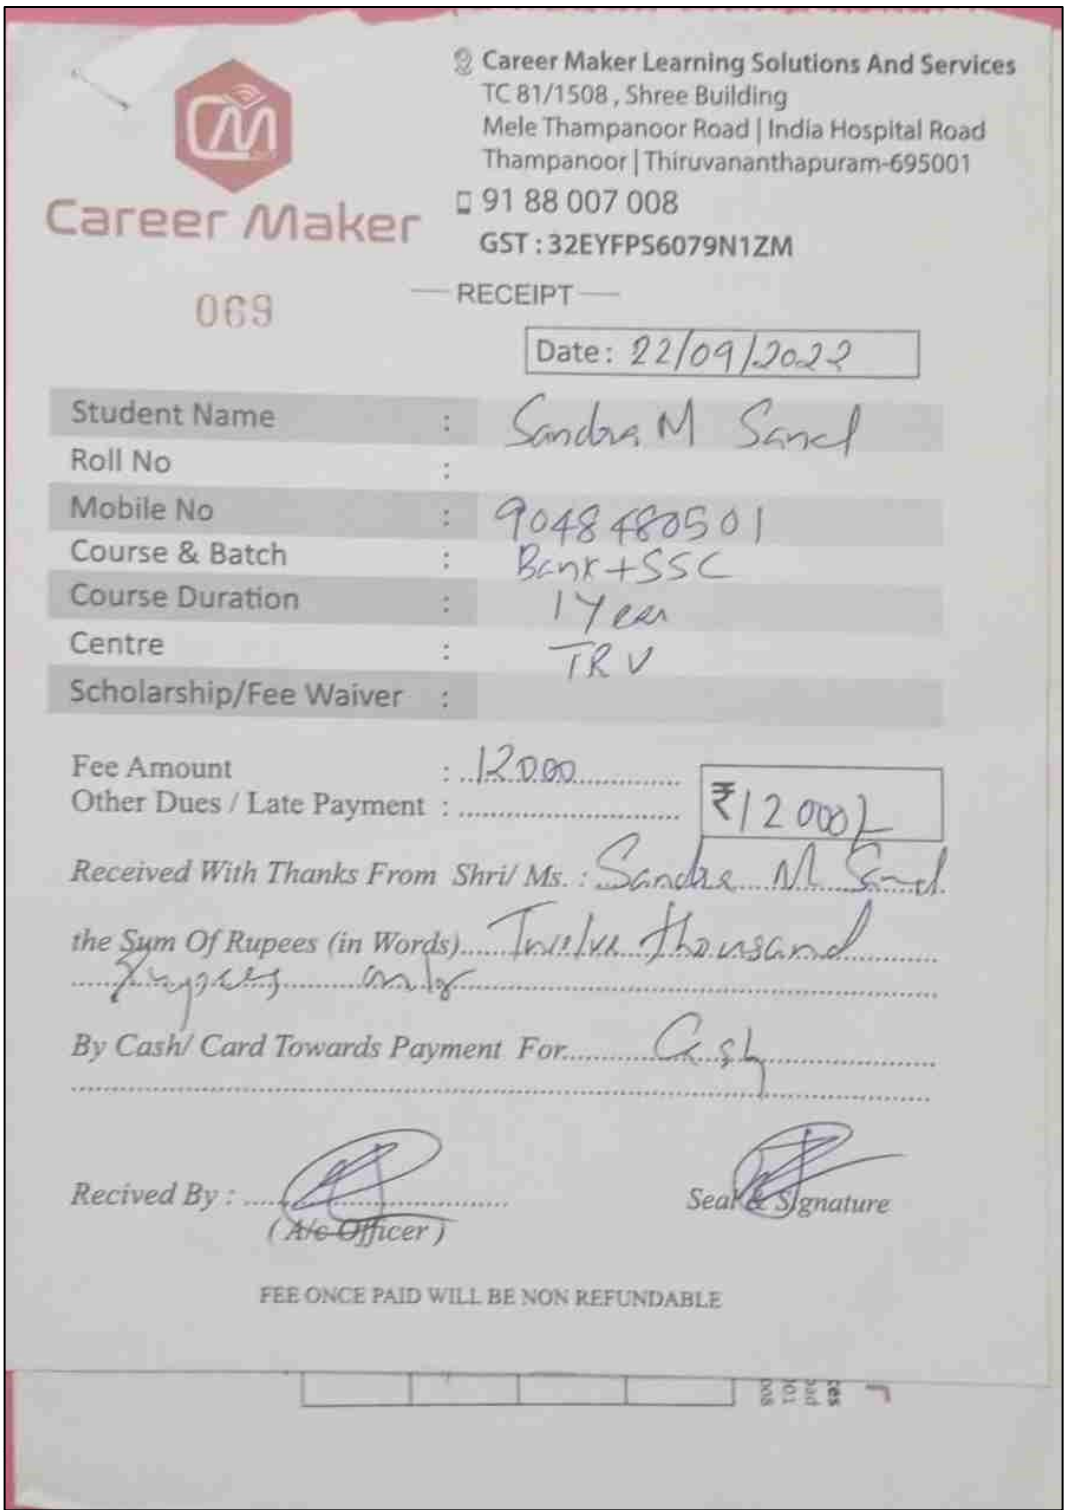 Career Maker Learning Solutions And Services
TC 81/1508 , Shree Building
Mele Thampanoor Road | India Hospital Road
Thampanoor | Thiruvananthapuram-695001
CM
Career Maker
91 88 007 008
GST : 32EYFPS6079N1ZM
069
RECEIPT
Date : 22/09/2022
Student Name : Sandra M Sanel
Roll No :
Mobile No : 9048480501
Course & Batch : Bank+SSC
Course Duration : 1 Year
Centre : TRV
Scholarship/Fee Waiver :
Fee Amount : 12000
Other Dues / Late Payment :
₹12000/-
Received With Thanks From Shri/ Ms. : Sandra M Sanel
the Sum Of Rupees (in Words) Twelve thousand
rupees only
By Cash/ Card Towards Payment For Cash
Recived By :
Seal & Signature
( A/c Officer )
FEE ONCE PAID WILL BE NON REFUNDABLE